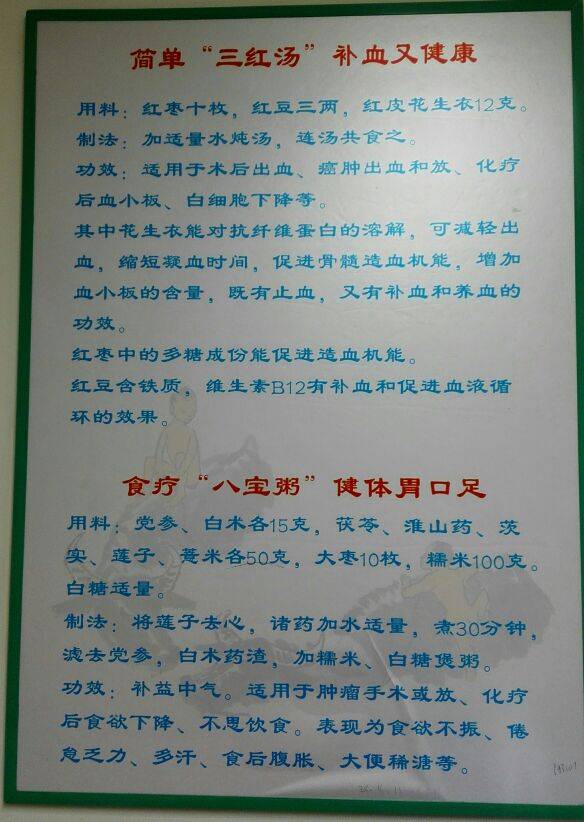 简单“三红汤”补血又健康
用料：红枣十枚，红豆三两，红皮花生衣12克。
制法：加适量水炖汤，连汤共食之。
功效：适用于术后出血、癌肿出血和放、化疗
后血小板、白细胞下降等。
其中花生衣能对抗纤维蛋白的溶解，可减轻出
血，缩短凝血时间，促进骨髓造血机能，增加
血小板的含量，既有止血，又有补血和养血的
功效。
红枣中的多糖成份能促进造血机能。
红豆含铁质，维生素B12有补血和促进血液循
环的效果。
食疗“八宝粥”健体胃口足
用料：党参、白术各15克，茯苓、淮山药、茨
实、莲子、薏米各50克，大枣10枚，糯米100克。
白糖适量。
制法：将莲子去心，诸药加水适量，煮30分钟，
滤去党参，白术药渣，加糯米、白糖煲粥。
功效：补益中气。适用于肿瘤手术或放、化疗
后食欲下降、不思饮食。表现为食欲不振、倦
怠乏力、多汗、食后腹胀、大便稀溏等。